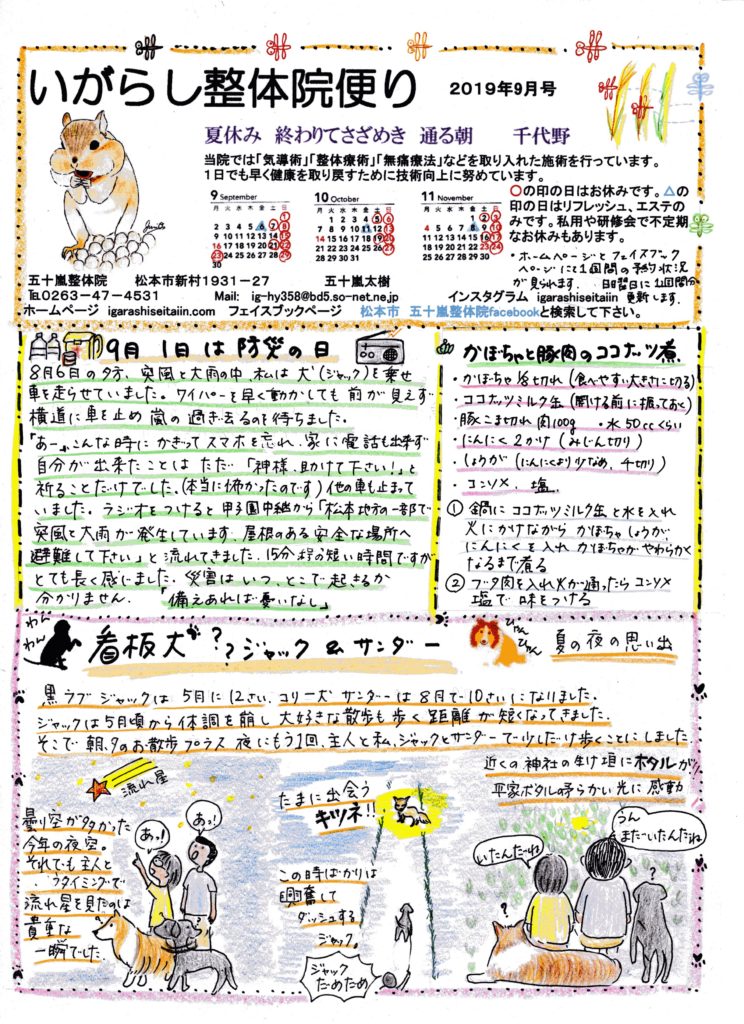 いがらし整体院便り 2019年9月号
夏休み 終わりてさざめき 通る朝 千代野
当院では「気導術」「整体療術」「無痛療法」などを取り入れた施術を行っています。
1日でも早く健康を取り戻すために技術向上に努めています。
9 September
月 火 水 木 金 土 日
1
2 3 4 5 6 7 8
9 10 11 12 13 14 15
16 17 18 19 20 21 22
23 24 25 26 27 28 29
30
10 October
月 火 水 木 金 土 日
1 2 3 4 5 6
7 8 9 10 11 12 13
14 15 16 17 18 19 20
21 22 23 24 25 26 27
28 29 30 31
11 November
月 火 水 木 金 土 日
1 2 3
4 5 6 7 8 9 10
11 12 13 14 15 16 17
18 19 20 21 22 23 24
25 26 27 28 29 30
○の印の日はお休みです。△の
印の日はリフレッシュ、エステの
みです。私用や研修会で不定期
なお休みもあります。
・ホームページとフェイスブック
ページに1週間の予約状況
が見られます。日曜日に1週間分
更新します。
五十嵐整体院 松本市新村1931-27 五十嵐太樹
℡0263-47-4531 Mail: ig-hy358@bd5.so-net.ne.jp インスタグラム igarashiseitaiin
ホームページ igarashiseitaiin.com フェイスブックページ 松本市 五十嵐整体院facebookと検索して下さい。
9月1日は防災の日
8月6日の夕方、突風と大雨の中、私は犬(ジャック)を乗せ
車を走らせていました。ワイパーを早く動かしても前が見えず
横道に車を止め嵐の過ぎ去るのを待ちました。
「あーぁこんな時にかぎってスマホを忘れ、家に電話も出来ず
自分が出来たことはただ「神様、助けて下さい!」と
祈ることだけでした。(本当に怖かったのです)他の車も止まって
いました。ラジオをつけると甲子園中継から「松本地方の一部で
突風と大雨が発生しています。屋根のある安全な場所へ
避難して下さい」と流れてきました。15分程の短い時間ですが
とても長く感じました。災害はいつ、どこで起きるか
分かりません。「備えあれば憂いなし」
かぼちゃと豚肉のココナッツ煮
・かぼちゃ 1/8切れ(食べやすい大きさに切る)
・ココナッツミルク缶(開ける前に振っておく)
・豚こま切れ肉100g ・水50ccくらい
・にんにく2かけ(みじん切り)
・しょうが(にんにくより少なめ、千切り)
・コンソメ、塩
① 鍋にココナッツミルク缶と水を入れ
火にかけながらかぼちゃ しょうが、
にんにくを入れ かぼちゃがやわらかく
なるまで煮る
② ブタ肉を入れ火が通ったらコンソメ
塩で味をつける
わん
わん
看板犬が??ジャック&サンダー
ひゃん
ひゃん
夏の夜の思い出
黒ラブ ジャックは5月に12さい、コリー犬サンダーは8月で10さいになりました。
ジャックは5月頃から体調を崩し大好きな散歩も歩く距離が短くなってきました。
そこで朝、夕のお散歩プラス夜にもう1回、主人と私、ジャックとサンダーで少しだけ歩くことにしました
流れ星
曇り空が多かった
今年の夜空。
それでも主人と
タイミングで
流れ星を見たのは
貴重な
一瞬でした。
あっ!
あっ!
たまに出会う
キツネ!!
この時ばかりは
興奮して
ダッシュする
ジャック。
ジャック
だめだめ
近くの神社の生け垣にホタルが!
平家ボタルの柔らかい光に感動
いたんだね
うん
まだいたんだね
?
?